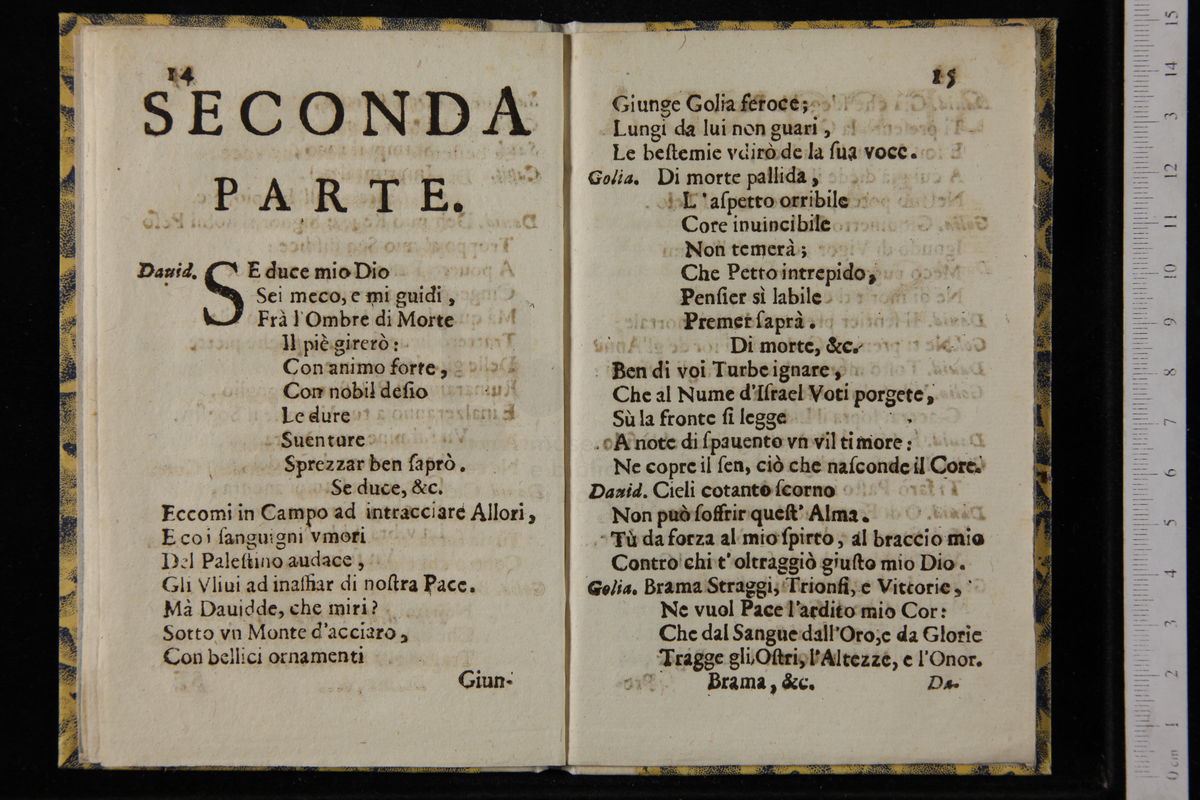 14
SECONDA
PARTE.
Dauid. SE duce mio Dio
Sei meco, e mi guidi,
Frà l'Ombre di Morte
Il piè girerò:
Con animo forte,
Con nobil desio
Le dure
Suenture
Sprezzar ben saprò.
Se duce, &c.
Eccomi in Campo ad intracciare Allori,
E co i sanguigni vmori
Del Palestino audace,
Gli Vliui ad inaffiar di nostra Pace.
Mà Dauidde, che miri?
Sotto vn Monte d'acciaro,
Con bellici ornamenti
Giun-
15
Giunge Golia feroce;
Lungi da lui non guari,
Le bestemie vdirò de la sua voce.
Golia. Di morte pallida,
L'aspetto orribile
Core inuincibile
Non temerà;
Che Petto intrepido,
Pensier sì labile
Premer saprà.
Di morte, &c.
Ben di voi Turbe ignare,
Che al Nume d'Israel Voti porgete,
Sù la fronte si legge
A note di spauento vn vil timore:
Ne copre il sen, ciò che nasconde il Core.
Dauid. Cieli cotanto scorno
Non può soffrir quest' Alma.
Tù da forza al mio spirto, al braccio mio
Contro chi t'oltraggiò giusto mio Dio.
Golia. Brama Straggi, Trionfi, e Vittorie,
Ne vuol Pace l'ardito mio Cor:
Che dal Sangue dall'Oro, e da Glorie
Tragge gli Ostri, l'Altezze, e l'Onor.
Brama, &c.
Da-
15
14
13
12
11
10
9
8
7
6
5
4
3
2
1
0 cm